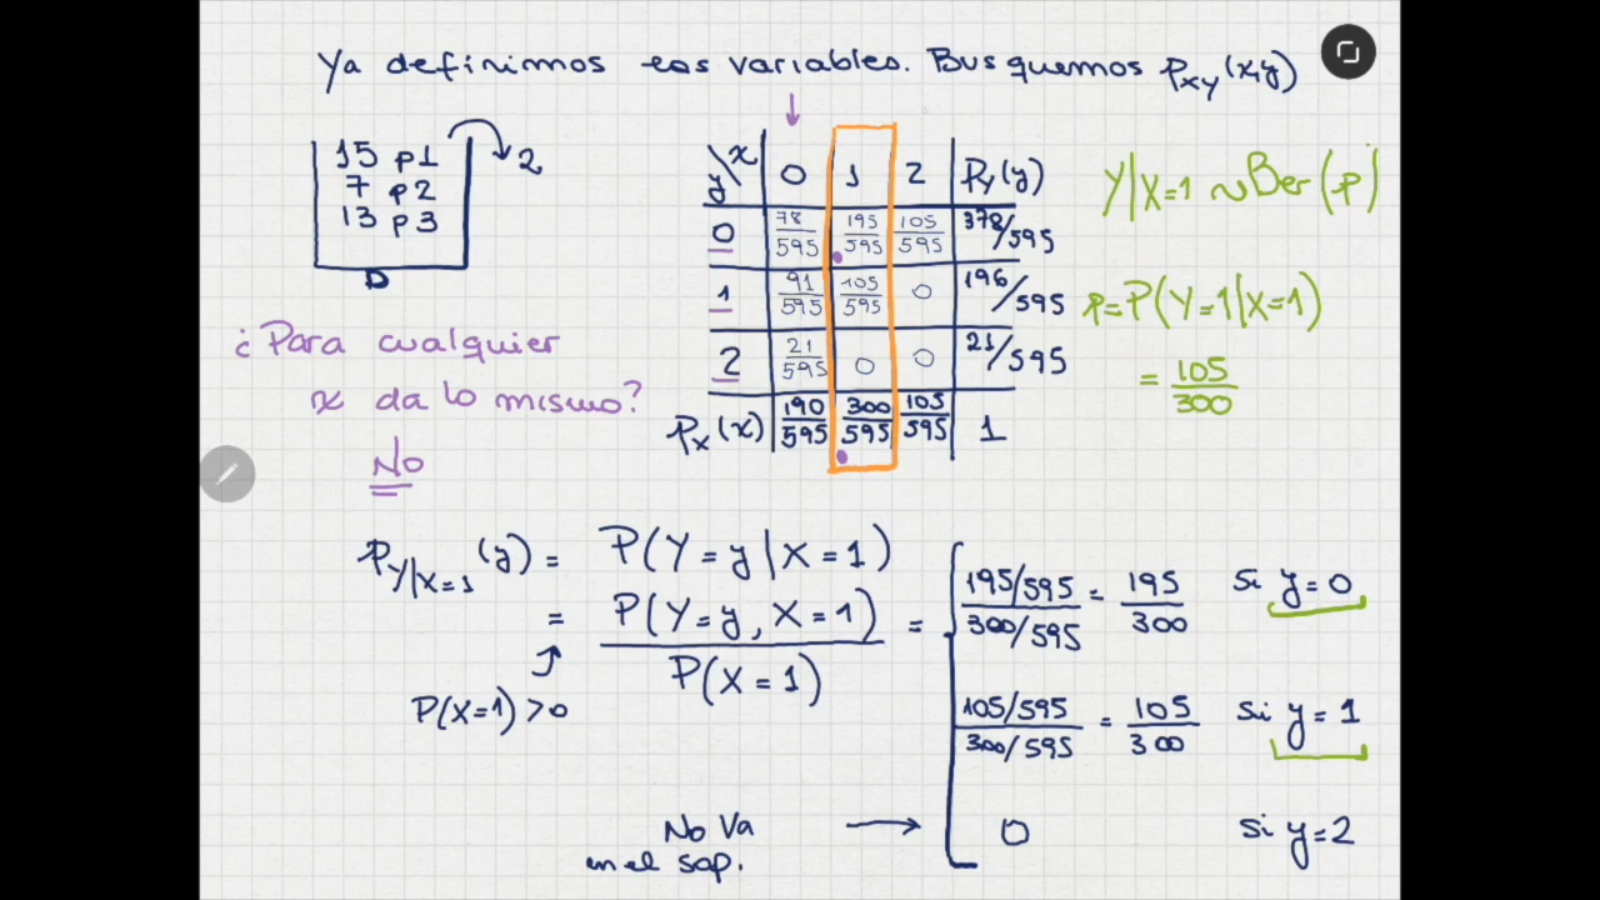 Ya definimos las variables. Busquemos P_XY(x,y)
15 p1
7 p2
13 p3
2
D
y\x 0 1 2 P_Y(y)
0 78/595 195/595 105/595 378/595
1 91/595 105/595 0 196/595
2 21/595 0 0 21/595
P_X(x) 190/595 300/595 105/595 1
Y|X=1 ~ Ber(p)
p=P(Y=1|X=1)
= 105/300
¿Para cualquier
x da lo mismo?
No
P_Y|X=1(y) = P(Y=y|X=1)
= P(Y=y, X=1) / P(X=1) =
P(X=1)>0
195/595 / 300/595 = 195/300 si y=0
105/595 / 300/595 = 105/300 si y=1
No va → 0 si y=2
en el sop.